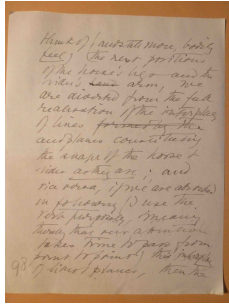 think of (and still more, bodily
feel) the next portions
of the horse's and the
rider's arm, we
are diverted from the full
realisation of the
of lines formed by the
and planes constituting
the shape of the horse &
rider as they are; and
vice versa, if we are absorbed
in following (I use the
verb purposely, meaning
thereby that our attention
takes time to pass from
point to point) this
of lines & planes, then the
93